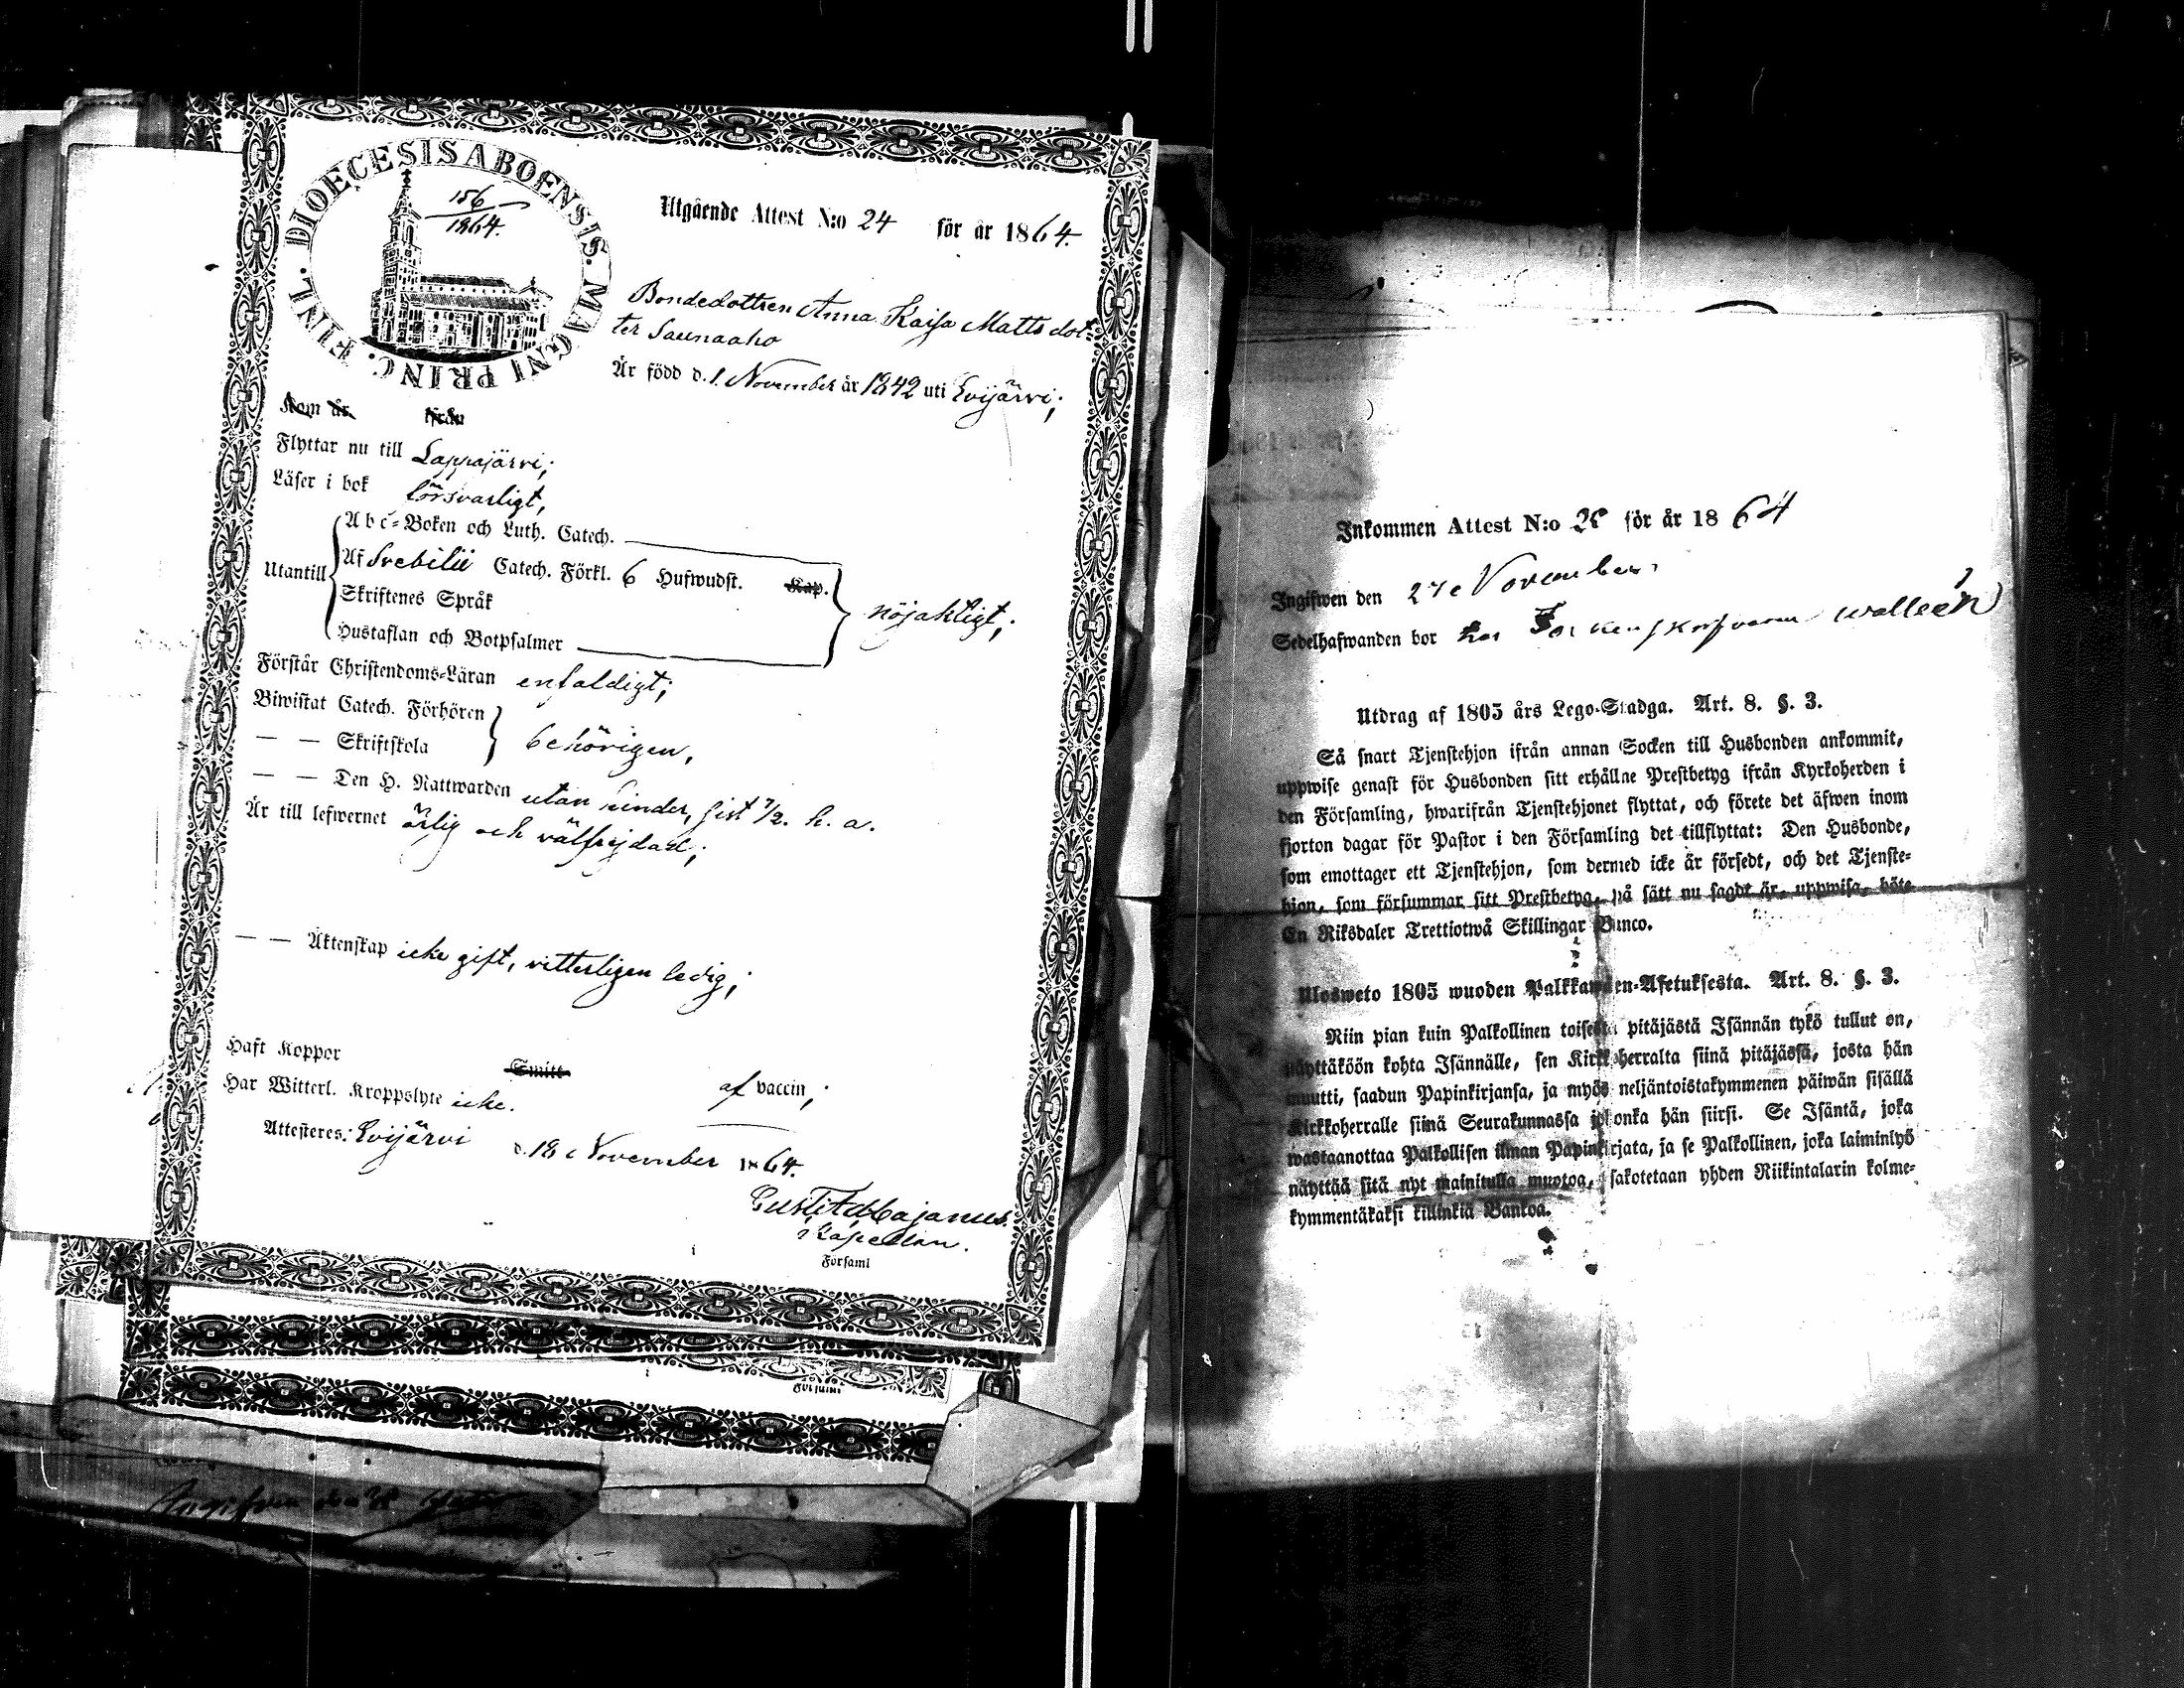 DIOECESIS ABOENSIS. MAGNI PRINC. FINL.
156
1864.
Utgående Attest N:o 24 för år 1864.
Bondedottren Anna Kaisa Mattsdot-
ter Saunaaho
Är född d. 1. November år 1842 uti Evijärvi;
Kom år ifrån
Flyttar nu till Lappajärvi;
Läser i bok försvarligt,
Utantill
Abc-Boken och Luth. Catech.
Af Svebilii Catech. Förkl. 6 Hufwudst. Kap.
Skriftenes Språk
Hustaflan och Botpsalmer
nöjaktigt;
Förstår Christendoms-Läran enfaldigt;
Biwistat Catech. Förhören
— — Skriftskola
behörigen,
— — Den H. Nattwarden utan hinder, sist 7/2. h. a.
Är till lefwernet ärlig och välfrejdad;
— — Äktenskap icke gift, vitterligen ledig;
Haft Koppor Smitt af vaccin;
Har Witterl. Kroppslyte icke.
Attesteras: Evijärvi d. 18 November 1864.
Gust. Ad. Cajanus.
Kapellan.
Församl
Inkommen Attest N:o för år 1864
Ingifwen den 27 November
Sedelhafwanden bor hos walleén
Utdrag af 1805 års Lego-Stadga. Art. 8. §. 3.
Så snart Tjenstehjon ifrån annan Socken till Husbonden ankommit,
uppwise genast för Husbonden sitt erhållne Prestbetyg ifrån Kyrkoherden i
den Församling, hwarifrån Tjenstehjonet flyttat, och förete det äfwen inom
fjorton dagar för Pastor i den Församling det tillflyttat: Den Husbonde,
som emottager ett Tjenstehjon, som dermed icke är försedt, och det Tjenste-
hjon, som försummar sitt Prestbetyg, på sätt nu sagdt är, uppwisa, böte
En Riksdaler Trettiotwå Skillingar Banco.
Ulosweto 1805 wuoden Palkkawäen-Asetuksesta. Art. 8. §. 3.
Niin pian kuin Palkollinen toisesta pitäjästä Isännän tykö tullut on,
näyttäköön kohta Isännälle, sen Kirkkoherralta siinä pitäjässä, josta hän
muutti, saadun Papinkirjansa, ja myös neljäntoistakymmenen päiwän sisällä
Kirkkoherralle siinä Seurakunnassa johonka hän siirsi. Se Isäntä, joka
wastaanottaa Palkollisen ilman Papinkirjata, ja se Palkollinen, joka laiminlyö
näyttää sitä nyt mainitulla muotoa, sakotetaan yhden Riikintalarin kolme-
kymmentäkaksi killinkiä Bankoa.
Församl